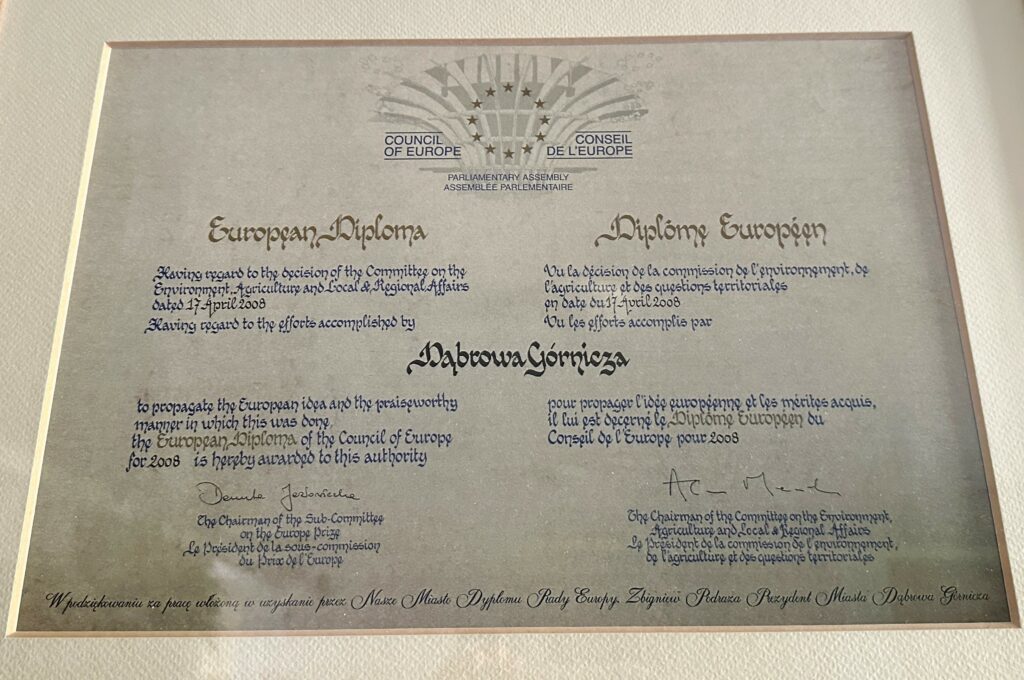 COUNCIL
OF EUROPE
CONSEIL
DE L'EUROPE
PARLIAMENTARY ASSEMBLY
ASSEMBLÉE PARLEMENTAIRE
European Diploma
Having regard to the decision of the Committee on the
Environment, Agriculture and Local & Regional Affairs
dated 17 April 2008
Having regard to the efforts accomplished by
Diplôme Européen
Vu la décision de la commission de l'environnement, de
l'agriculture et des questions territoriales
en date du 17 April 2008
Vu les efforts accomplis par
Dąbrowa Górnicza
to propagate the European idea and the praiseworthy
manner in which this was done,
the European Diploma of the Council of Europe
for 2008 is hereby awarded to this authority
pour propager l'idée européenne et les mérites acquis,
il lui est décerné le Diplôme Européen du
Conseil de l'Europe pour 2008
The Chairman of the Sub-Committee
on the Europe Prize
Le Président de la sous-commission
du Prix de l'Europe
The Chairman of the Committee on the Environment,
Agriculture and Local & Regional Affairs
Le Président de la commission de l'environnement,
de l'agriculture et des questions territoriales
W podziękowaniu za pracę włożoną w uzyskanie przez Nasze Miasto Dyplomu Rady Europy, Zbigniew Podraza Prezydent Miasta Dąbrowa Górnicza